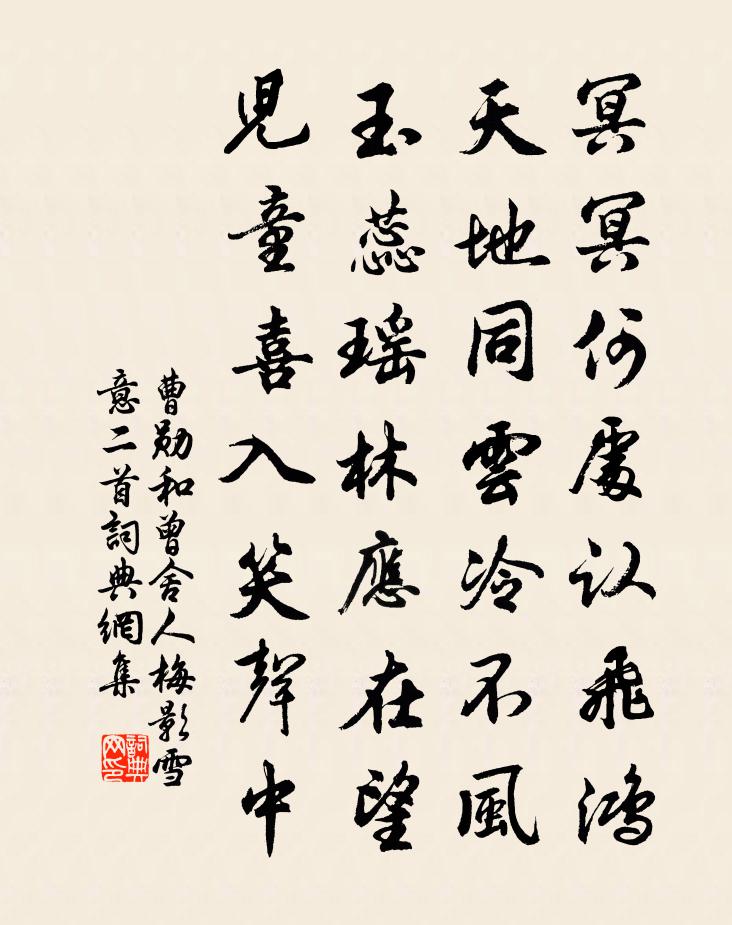 冥冥何處认飛鴻
天地同雲冷不風
玉蕊瑶林應在望
児童喜入笑聲中
曹勋和曾舍人梅影雪
意二首詞典網集
詞典
网印